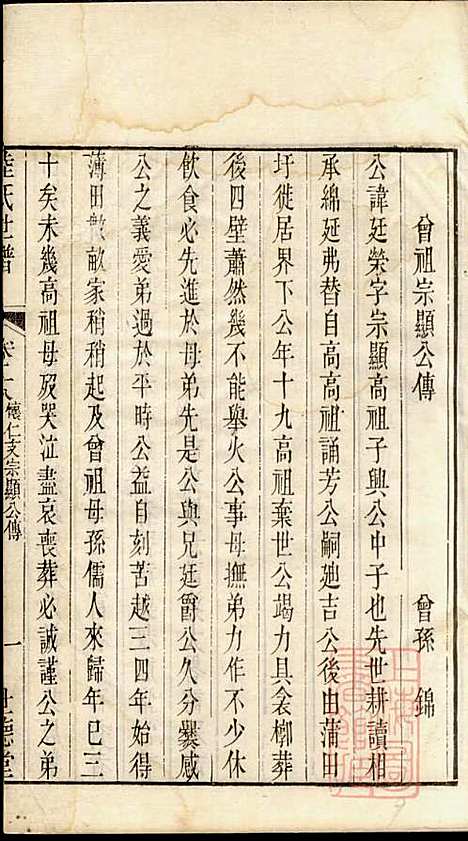 曾祖宗顯公傳　曾孫　錦
公諱廷榮字宗顯高祖子興公中子也先世耕讀相
承綿延弗替自高高祖誦芳公嗣廸吉公後由蒲田
圩徙居界下公年十九高祖棄世公竭力具衾槨葬
後四壁蕭然幾不能舉火公事母撫弟力作不少休
飲食必先進於母弟先是公與兄廷爵公久分爨感
公之義愛弟過於平時公益自刻苦越三四年始得
薄田數畝家稍稍起及曾祖母孫儒人來歸年已三
十矣未幾高祖母歿哭泣盡哀喪葬必誠謹公之弟
陸氏世譜　卷十八　懷仁支宗顯公傳　一　世德堂